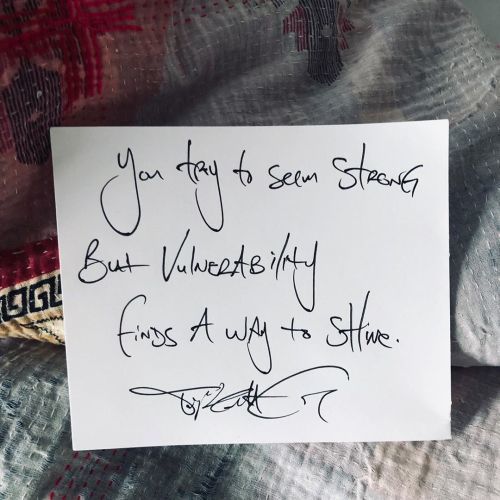 You try to seem STRONG
But VulnerAbility
finds A wAy to sHine.